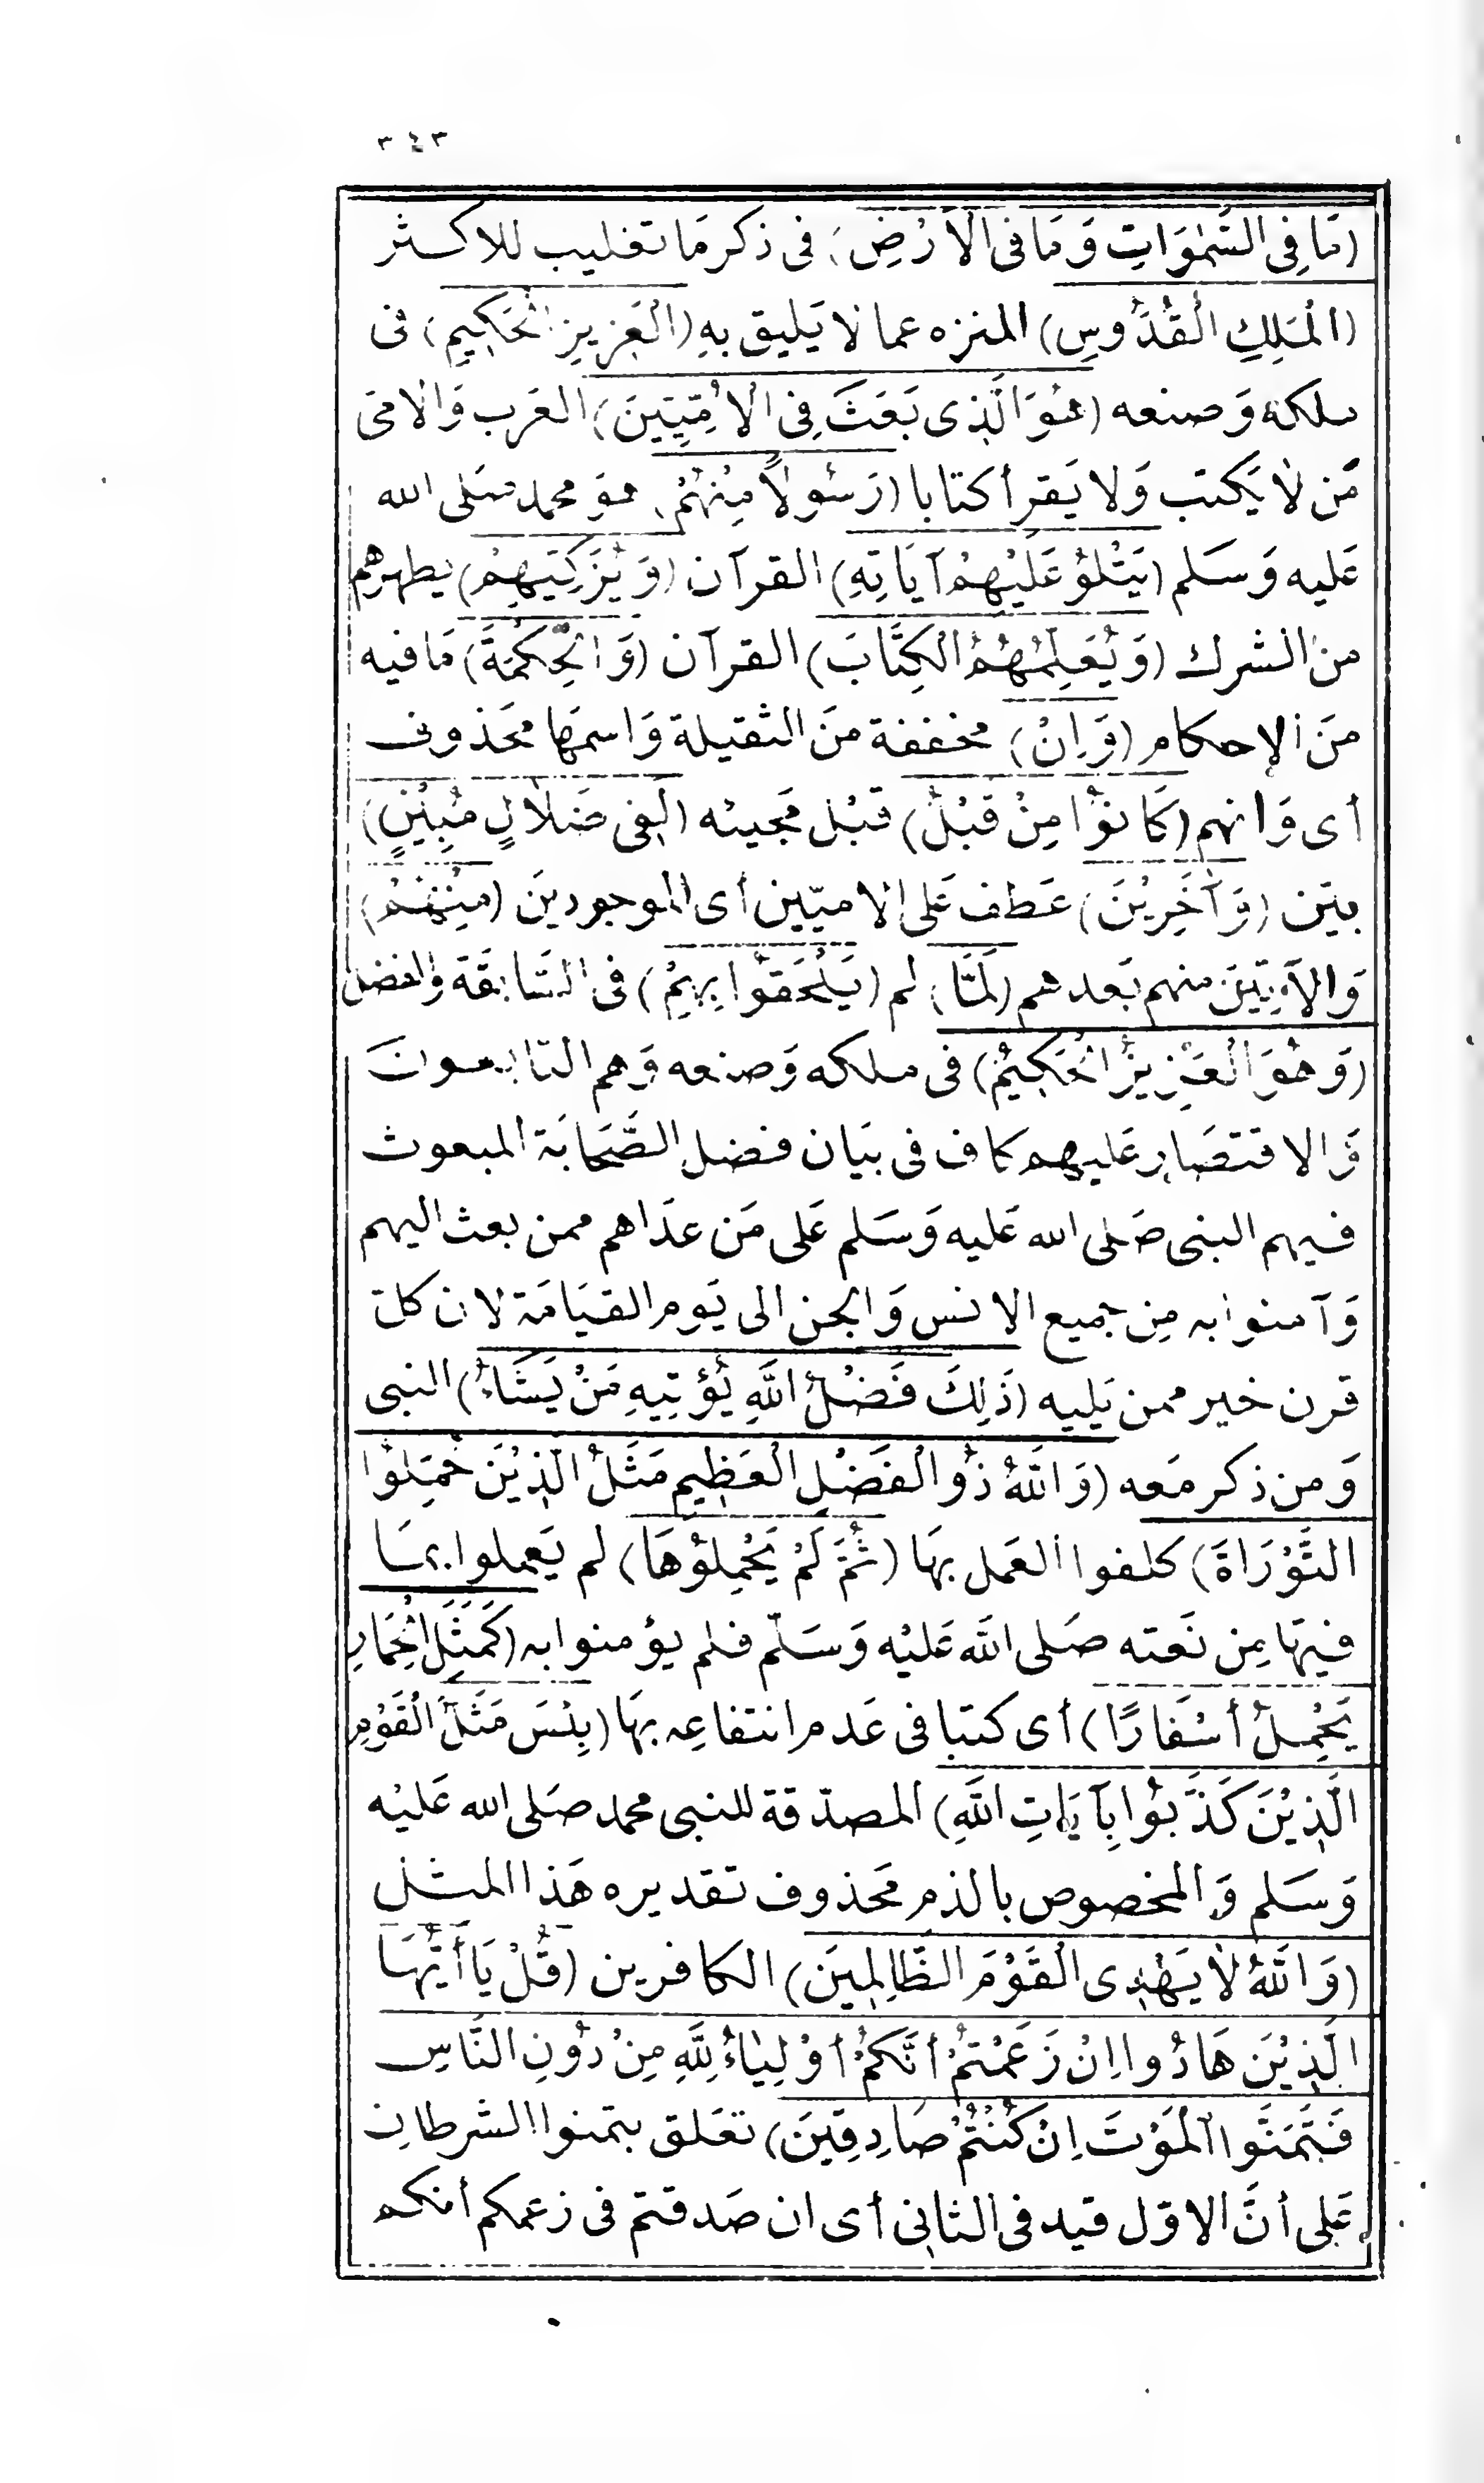 ٣٤٣
(مَا فِى السَّمٰوَاتِ وَمَا فى الْاَرْضِ) فى ذكر مَا تغليب للاكثر
(الْمَلِكِ الْقُدُّوسِ) المنزه عما لا يَليق بهِ (الْعَزِيزِ الْحَكِيمِ) فى
ملكه وَصنعه (هُوَ الَّذِى بَعَثَ فِى الْاُمِّيِّينَ) العَرب وَالامى
مَن لا يَكتب وَلا يَقرأ كتابا (رَسُولاً مِنْهُمْ) هوَ محمد صَلى الله
عَليه وَسَلم (يَتْلُوْ عَلَيْهِمْ آيَاتِهِ) القرآن (وَيُزَكِّيَهِمْ) يطهرهم
من الشرك (وَيُعَلِّمُهُمُ الْكِتَابَ) القرآن (وَالْحِكْمَةَ) مَا فيه
منَ الإحكام (وَاِنْ) مخففة منَ الثقيلة وَاسمهَا محَذوف
أى وَانهم (كَانُوْا مِنْ قَبْلُ) قَبْل مَجيئه (لَفِى ضَلَالٍ مُّبِيْنٍ)
بيّن (وَآخَرِيْنَ) عَطف عَلى الاميّين أى الموجودينَ (مِنْهُمْ)
وَالآتِيَينَ منهم بَعدهم (لَمَّا) لم (يَلْحَقُوْا بِهِمْ) فى السَّابقَة وَالفضل
(وَهُوَ الْعَزِيزُ الْحَكِيْمُ) فى ملكه وَصنعه وَهم التابعونَ
وَالاقتصَار عَليهم كاف فى بيَان فضل الصَّحَابَة المبعوث
فيهم النبى صَلى الله عَليه وَسَلم عَلى مَن عدَاهم ممن بعث اليهم
وَآمنوا به مِن جميع الانس وَالجن الى يَوم القيَامَة لان كل
قرن خير ممن يَليه (ذَلِكَ فَضْلُ اللّهِ يُؤْتِيهِ مَنْ يَشَاءُ) النبى
وَمن ذكر مَعه (وَاللّهُ ذُو الْفَضْلِ الْعَظِيمِ مَثَلُ الَّذِيْنَ حُمِّلُوْا
التَّوْرَاةَ) كلفوا العَمل بهَا (ثُمَّ لَمْ يَحْمِلُوْهَا) لم يَعملوا بمَا
فيهَا مِن نَعته صَلى اللّه عَليْه وَسَلّم فلم يؤمنوا به (كَمَثَلِ الْحِمَارِ
يَحْمِلُ أسْفَارًا) أى كتبا فى عَدم انتفاعِه بهَا (بِئْسَ مَثَلُ الْقَوْمِ
الَّذِيْنَ كَذَّبُوْا بِآيَاتِ اللّهِ) المصدّقة للنبى محمد صَلى الله عَليْه
وَسَلم وَالمخصوص بالذم مَحذوف تقديره هَذا المثل
(وَاللّهُ لَا يَهْدِى الْقَوْمَ الظَّالِمِينَ) الكافرين (قُلْ يَا أَيُّهَا
الَّذِيْنَ هَادُوا اِنْ زَعَمْتُمْ أنَّكُمْ أوْلِيَاءُ لِلَّهِ مِنْ دُوْنِ النَّاسِ
فَتَمَنَّوُا الْمَوْتَ اِنْ كُنْتُمْ صَادِقِينَ) تعَلق بتمنوا الشرطان
عَلى أنَّ الاوّل قيد فى الثانى أى ان صَدقتم فى زعمكم أنكم